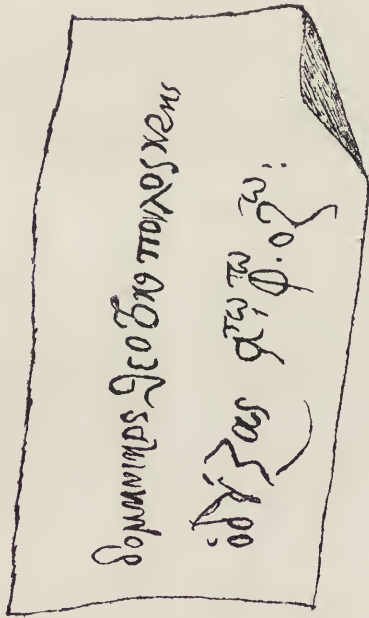 δομήνικος θεοτοκόπουλος κρης
ὁ δείξας α φ ο ζ: